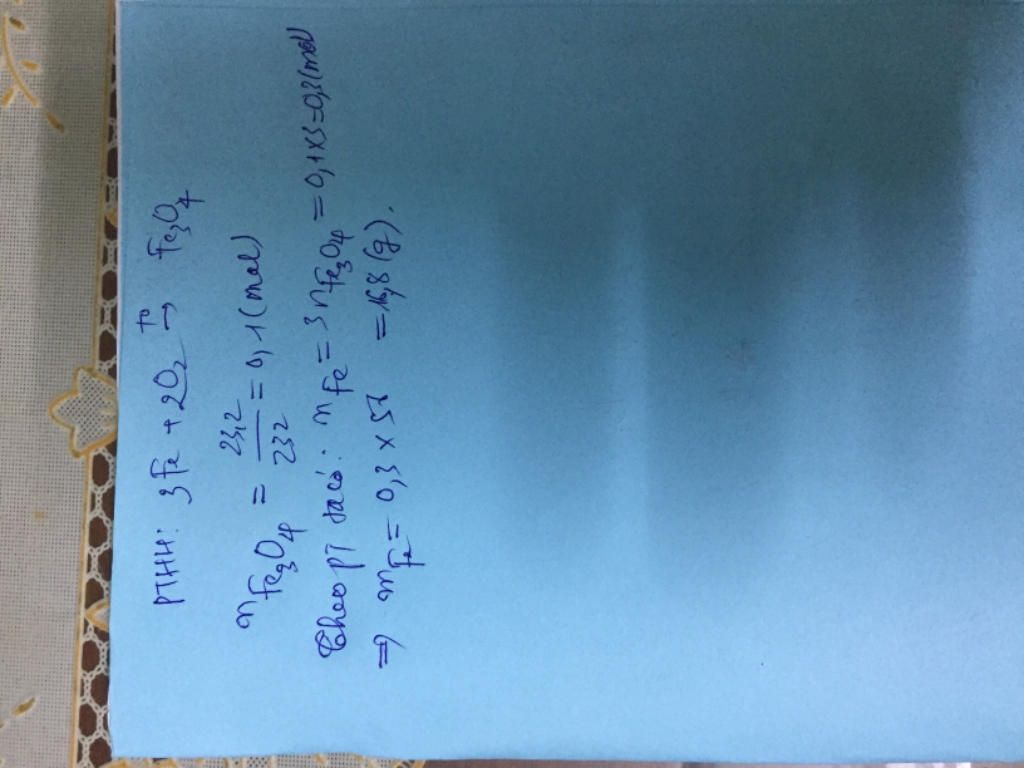 PTHH: 3Fe + 2O₂ →^{to} Fe₃O₄
n Fe₃O₄ = 23,2/232 = 0,1 (mol)
Theo PT ta có: n Fe = 3 n Fe₃O₄ = 0,1 x 3 = 0,3 (mol
=> m Fe = 0,3 x = 16,8 (g).